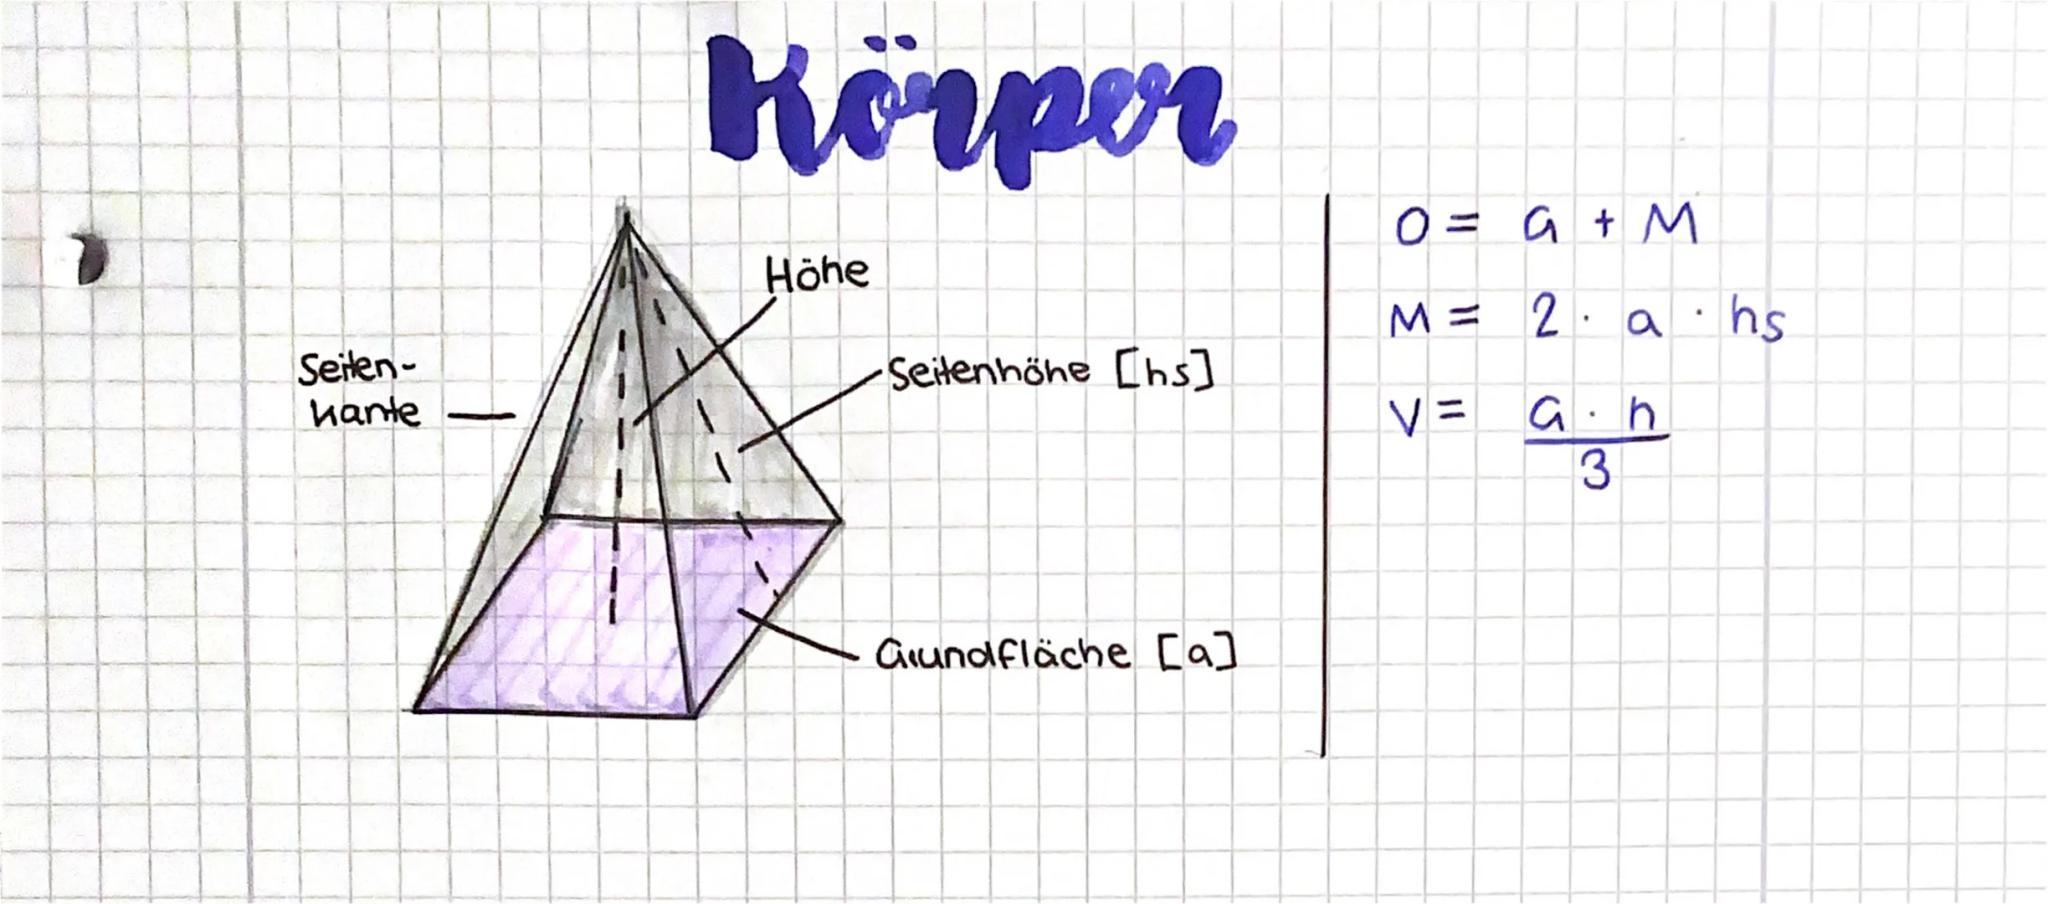 Körper
Höhe
Seiten-
kante
Seitenhöhe [hs]
Grundfläche [a]
O = G + M
M = 2 · a · hs
V = G · h
3